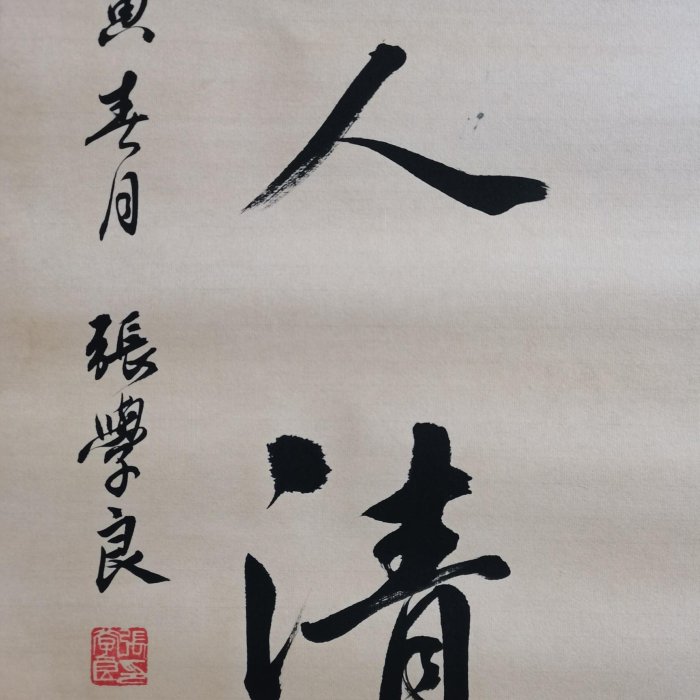 人清
寅春月 張學良
張印
學良